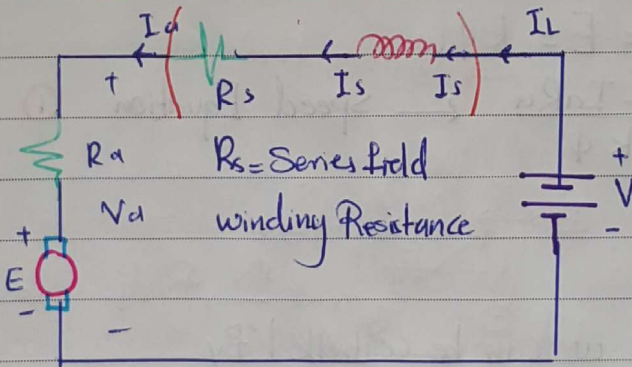 Ia
IL
+
Rs
Is
Is
Ra
Rs=Series field
+
V
Va
winding Resistance
-
+
E
-
-